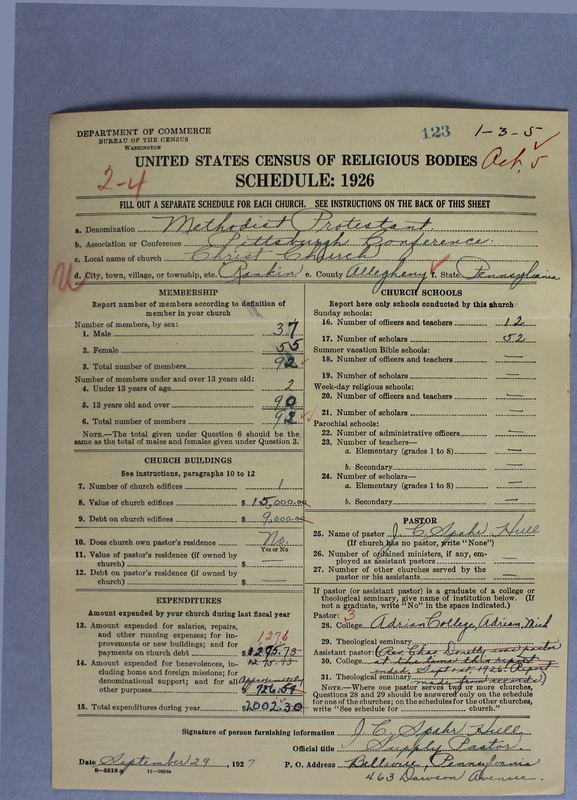 DEPARTMENT OF COMMERCE
BUREAU OF THE CENSUS
WASHINGTON
123
1-3-5
UNITED STATES CENSUS OF RELIGIOUS BODIES
Act. 5
SCHEDULE: 1926
2-4
FILL OUT A SEPARATE SCHEDULE FOR EACH CHURCH. SEE INSTRUCTIONS ON THE BACK OF THIS SHEET
a. Denomination Methodist Protestant
b. Association or Conference Pittsburgh Conference
c. Local name of church Christ Church
d. City, town, village, or township, etc. Rankin e. County Allegheny f. State Pennsylvania
MEMBERSHIP
Report number of members according to definition of member in your church
Number of members, by sex:
1. Male 37
2. Female 55
3. Total number of members 92
Number of members under and over 13 years old:
4. Under 13 years of age 2
5. 13 years old and over 90
6. Total number of members 92
NOTE.—The total given under Question 6 should be the same as the total of males and females given under Question 3.
CHURCH BUILDINGS
See instructions, paragraphs 10 to 12
7. Number of church edifices 1
8. Value of church edifices $ 15,000.00
9. Debt on church edifices $ 9,000.00
10. Does church own pastor's residence? No.
Yes or No
11. Value of pastor's residence (if owned by church) $ —
12. Debt on pastor's residence (if owned by church) $ —
EXPENDITURES
Amount expended by your church during last fiscal year
13. Amount expended for salaries, repairs, and other running expenses; for improvements or new buildings; and for payments on church debt
1276
$1275.73
1275.73
14. Amount expended for benevolences, including home and foreign missions; for denominational support; and for all other purposes
Approximately
$ 726.57
15. Total expenditures during year $2002.30
CHURCH SCHOOLS
Report here only schools conducted by this church
Sunday schools:
16. Number of officers and teachers 12
17. Number of scholars 52
Summer vacation Bible schools:
18. Number of officers and teachers —
19. Number of scholars —
Week-day religious schools:
20. Number of officers and teachers —
21. Number of scholars —
Parochial schools:
22. Number of administrative officers —
23. Number of teachers—
a. Elementary (grades 1 to 8) —
b. Secondary —
24. Number of scholars—
a. Elementary (grades 1 to 8) —
b. Secondary —
PASTOR
25. Name of pastor J. C. Spahr Hull
(If church has no pastor, write "None")
26. Number of ordained ministers, if any, employed as assistant pastors —
27. Number of other churches served by the pastor or his assistants —
If pastor (or assistant pastor) is a graduate of a college or theological seminary, give name of institution below. (If not a graduate, write "No" in the space indicated.)
Pastor: 3
28. College Adrian College, Adrian, Mich
29. Theological seminary
Assistant pastor: (Rev. Chas Donelly was pastor
30. College at the time this report
ended Sept 1st 1926. Report
31. Theological seminary made from records)
NOTE.—Where one pastor serves two or more churches, Questions 28 and 29 should be answered only on the schedule for one of the churches; on the schedules for the other churches, write "See schedule for church."
Signature of person furnishing information J. C. Spahr Hull
Official title Supply Pastor.
Date September 29, 1927 P. O. Address Belleville, Pennsylvania
8—5518 a 11—9064a
463 Dawson Avenue.